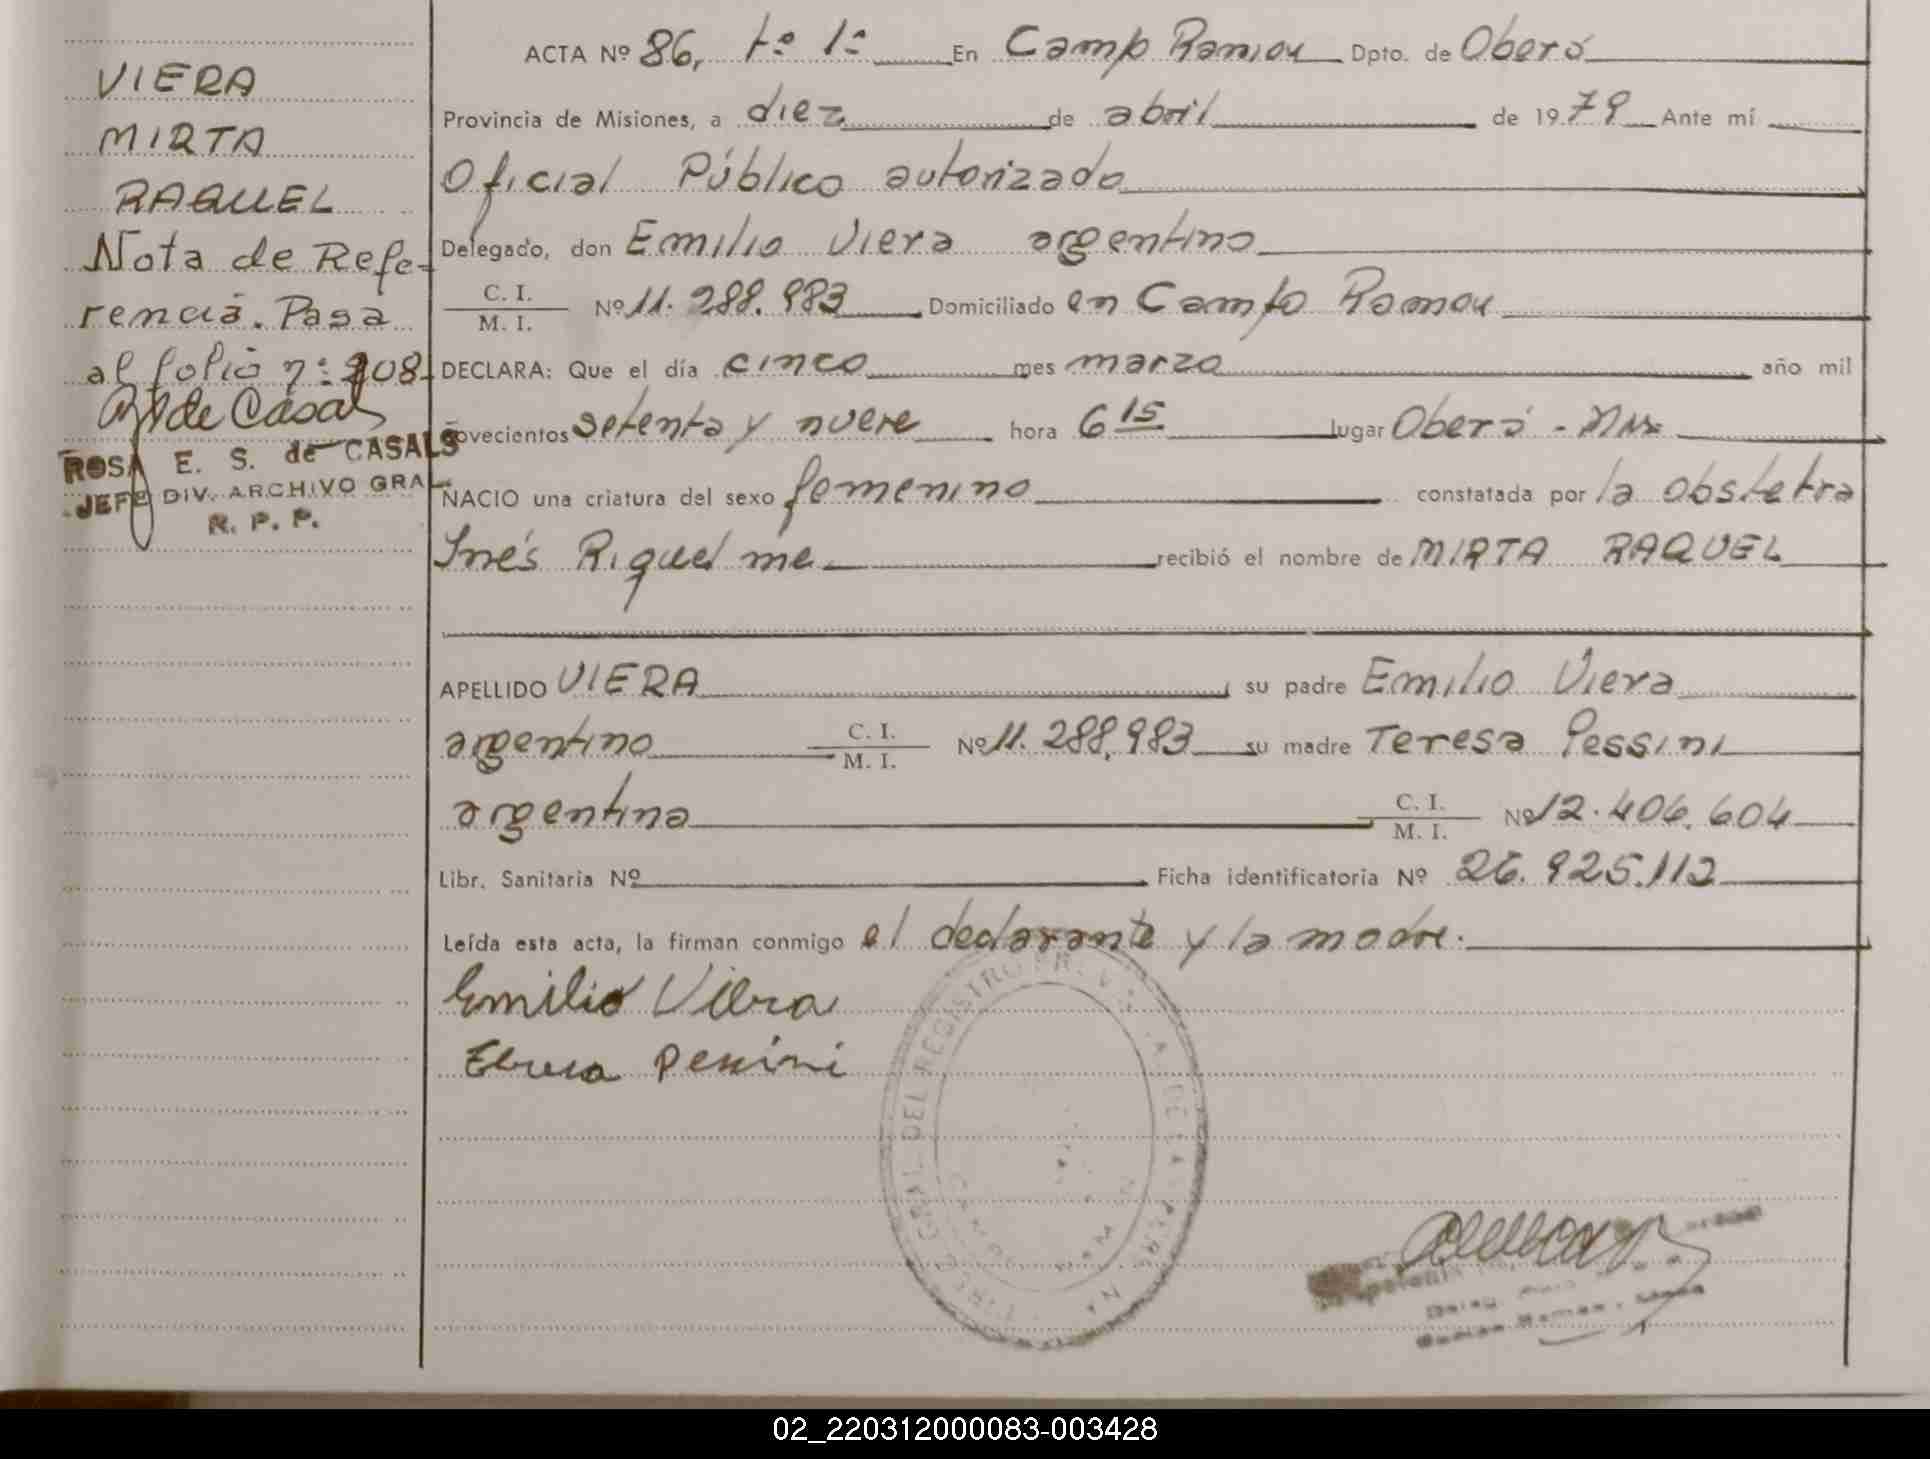 VIERA
MIRTA
RAQUEL
Nota de Refe-
rencia. Pasa
al folio nº 208
ROSA E. S. de CASALS
JEFE DIV. ARCHIVO GRAL
R. P. P.
ACTA Nº 86, tº 1º En Camp Ramon Dpto. de Oberá
Provincia de Misiones, a diez de abril de 1979 Ante mí
Oficial Público autorizado
Delegado, don Emilio Viera argentino
C. I.
M. I. Nº 11.288.983 Domiciliado en Campo Ramon
DECLARA: Que el día cinco mes marzo año mil
novecientos setenta y nueve hora 6 15 lugar Oberá - Mnes
NACIO una criatura del sexo femenino constatada por la obstetra
Inés Riquelme recibió el nombre de MIRTA RAQUEL
APELLIDO VIERA su padre Emilio Viera
argentino C. I.
M. I. Nº 11.288.983 su madre Teresa Pessini
argentina C. I.
M. I. Nº 12.406.604
Libr. Sanitaria Nº Ficha identificatoria Nº 26.925.112
Leída esta acta, la firman conmigo el declarante y la madre.
Emilio Viera
Pessini
02_220312000083-003428